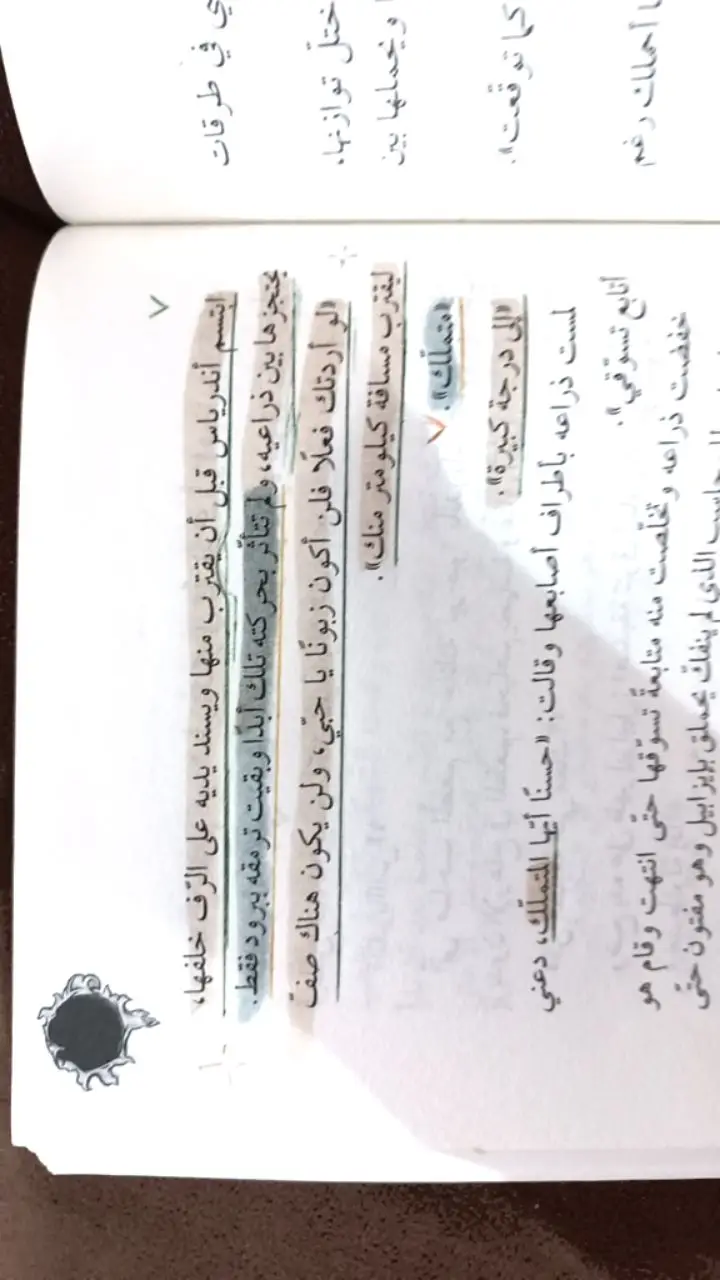 ي في طرقات
ختل توازنها،
ويحملها بين
كما توقعت».
أحملك رغم
ابتسم أندرياس قبل أن يقترب منها ويسند يديه على الرّف خلفها،
يحتجزها بين ذراعيه، ولم تتأثّر بحركته تلك أبدًا وبقيت ترمقه ببرود فقط.
«لو أردتك فعلًا فلن أكون زبونًا يا حبّي، ولن يكون هناك صفّ
ليقترب مسافة كيلو متر منك».
«متملّك».
«إلى درجة كبيرة».
لمست ذراعه بأطراف أصابعها وقالت: «حسنًا أيّها المتملّك، دعني
أتابع تسوّقي».
خفضت ذراعه وتخلّصت منه متابعةً تسوّقها حتّى انتهت وقام هو
الذي لم ينفكّ يحملق بإيزابيل وهو مفتون حتّى